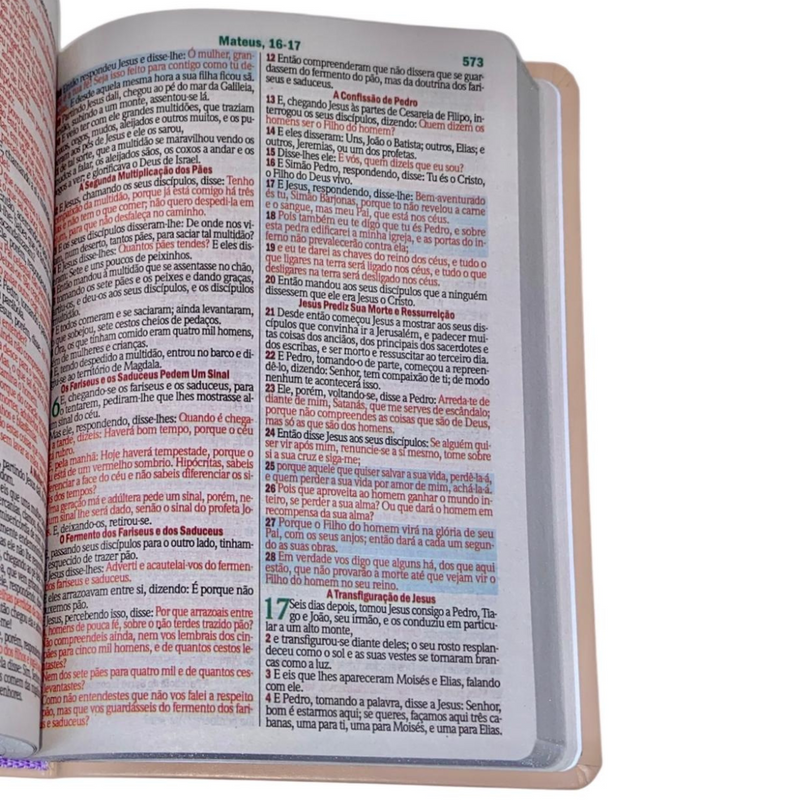 Mateus, 16-17
573
respondeu Jesus e disse-lhe: Ó mulher, gran-
Seja isso feito para contigo como tu de-
E desde aquela mesma hora a sua filha ficou sã.
Jesus dali, chegou ao pé do mar da Galileia,
a um monte, assentou-se lá.
ter com ele grandes multidões, que traziam
cegos, mudos, aleijados e outros muitos, e os pu-
aos pés de Jesus e ele os sarou,
tal sorte, que a multidão se maravilhou vendo os
a falar, os aleijados sãos, os coxos a andar e os
a ver; e glorificava o Deus de Israel.
A Segunda Multiplicação dos Pães
Jesus, chamando os seus discípulos, disse: Tenho
da multidão, porque já está comigo há três
e não tem o que comer; não quero despedi-la em
para que não desfaleça no caminho.
E os seus discípulos disseram-lhe: De onde nos vi-
num deserto, tantos pães, para saciar tal multidão?
Jesus disse-lhe: Quantos pães tendes? E eles dis-
Sete e uns poucos de peixinhos.
mandou à multidão que se assentasse no chão,
tomando os sete pães e os peixes e dando graças,
e deu-os aos seus discípulos, e os discípulos
E todos comeram e se saciaram; ainda levantaram,
que sobejou, sete cestos cheios de pedaços.
os que tinham comido eram quatro mil homens,
de mulheres e crianças.
tendo despedido a multidão, entrou no barco e di-
ao território de Magdala.
Os Fariseus e os Saduceus Pedem Um Sinal
E, chegando-se os fariseus e os saduceus, para
o tentarem, pediram-lhe que lhes mostrasse al-
sinal do céu.
Mas ele, respondendo, disse-lhes: Quando é chega-
a tarde, dizeis: Haverá bom tempo, porque o céu
rubro.
pela manhã: Hoje haverá tempestade, porque o
está de um vermelho sombrio. Hipócritas, sabeis
a face do céu e não sabeis diferenciar os si-
dos tempos?
geração má e adúltera pede um sinal, porém, ne-
sinal lhe será dado, senão o sinal do profeta Jo-
E, deixando-os, retirou-se.
O Fermento dos Fariseus e dos Saduceus
passando seus discípulos para o outro lado, tinham-
esquecido de trazer pão.
Jesus disse-lhes: Adverti e acautelai-vos do fermen-
fariseus e saduceus.
eles arrazoavam entre si, dizendo: É porque não
pão.
Jesus, percebendo isso, disse: Por que arrazoais entre
homens de pouca fé, sobre o não terdes trazido pão?
compreendeis ainda, nem vos lembrais dos cin-
pães para cinco mil homens, e de quantos cestos le-
Nem dos sete pães para quatro mil e de quantos ces-
levantastes?
Como não entendestes que não vos falei a respeito
pão, mas que vos guardásseis do fermento dos fari-
e saduceus?
12 Então compreenderam que não dissera que se guar-
dassem do fermento do pão, mas da doutrina dos fari-
seus e saduceus.
A Confissão de Pedro
13 E, chegando Jesus às partes de Cesareia de Filipo, in-
terrogou os seus discípulos, dizendo: Quem dizem os
homens ser o Filho do homem?
14 E eles disseram: Uns, João o Batista; outros, Elias; e
outros, Jeremias, ou um dos profetas.
15 Disse-lhes ele: E vós, quem dizeis que eu sou?
16 E Simão Pedro, respondendo, disse: Tu és o Cristo,
o Filho do Deus vivo.
17 E Jesus, respondendo, disse-lhe: Bem-aventurado
és tu, Simão Barjonas, porque to não revelou a carne
e o sangue, mas meu Pai, que está nos céus.
18 Pois também eu te digo que tu és Pedro, e sobre
esta pedra edificarei a minha igreja, e as portas do in-
ferno não prevalecerão contra ela;
19 e eu te darei as chaves do reino dos céus, e tudo o
que ligares na terra será ligado nos céus, e tudo o que
desligares na terra será desligado nos céus.
20 Então mandou aos seus discípulos que a ninguém
dissessem que ele era Jesus o Cristo.
Jesus Prediz Sua Morte e Ressurreição
21 Desde então começou Jesus a mostrar aos seus dis-
cípulos que convinha ir a Jerusalém, e padecer mui-
tas coisas dos anciãos, dos principais dos sacerdotes e
dos escribas, e ser morto e ressuscitar ao terceiro dia.
22 E Pedro, tomando-o de parte, começou a repreen-
dê-lo, dizendo: Senhor, tem compaixão de ti; de modo
nenhum te acontecerá isso.
23 Ele, porém, voltando-se, disse a Pedro: Arreda-te de
diante de mim, Satanás, que me serves de escândalo;
porque não compreendes as coisas que são de Deus,
mas só as que são dos homens.
24 Então disse Jesus aos seus discípulos: Se alguém qui-
ser vir após mim, renuncie-se a si mesmo, tome sobre
si a sua cruz e siga-me;
25 porque aquele que quiser salvar a sua vida, perdê-la-á,
e quem perder a sua vida por amor de mim, achá-la-á.
26 Pois que aproveita ao homem ganhar o mundo in-
teiro, se perder a sua alma? Ou que dará o homem em
recompensa da sua alma?
27 Porque o Filho do homem virá na glória de seu
Pai, com os seus anjos; então dará a cada um segun-
do as suas obras.
28 Em verdade vos digo que alguns há, dos que aqui
estão, que não provarão a morte até que vejam vir o
Filho do homem no seu reino.
A Transfiguração de Jesus
17 Seis dias depois, tomou Jesus consigo a Pedro, Tia-
go e João, seu irmão, e os conduziu em particu-
lar a um alto monte,
2 e transfigurou-se diante deles; o seu rosto resplan-
deceu como o sol e as suas vestes se tornaram bran-
cas como a luz.
3 E eis que lhes apareceram Moisés e Elias, falando
com ele.
4 E Pedro, tomando a palavra, disse a Jesus: Senhor,
bom é estarmos aqui; se queres, façamos aqui três ca-
banas, uma para ti, uma para Moisés, e uma para Elias.